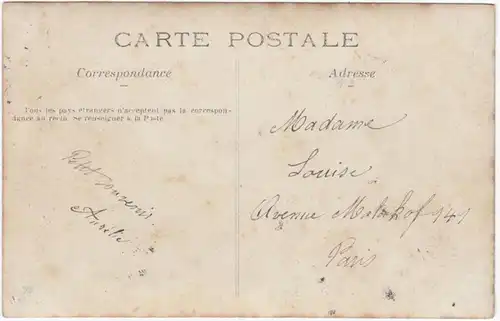 CARTE POSTALE
Correspondance
Tous les pays étrangers n'acceptent pas la correspon-
dance au recto. Se renseigner à la Poste
Petit souvenir
Aurélie
Adresse
Madame
Louise
Avenue Malakof 941
Paris